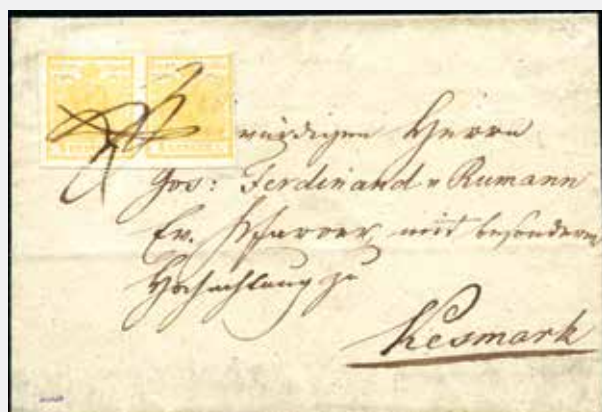 würdigen Herrn
Jos: Ferdinand v Rumann
Ev. Pfarrer, mit besonderer
Hochachtung zu
Kesmark